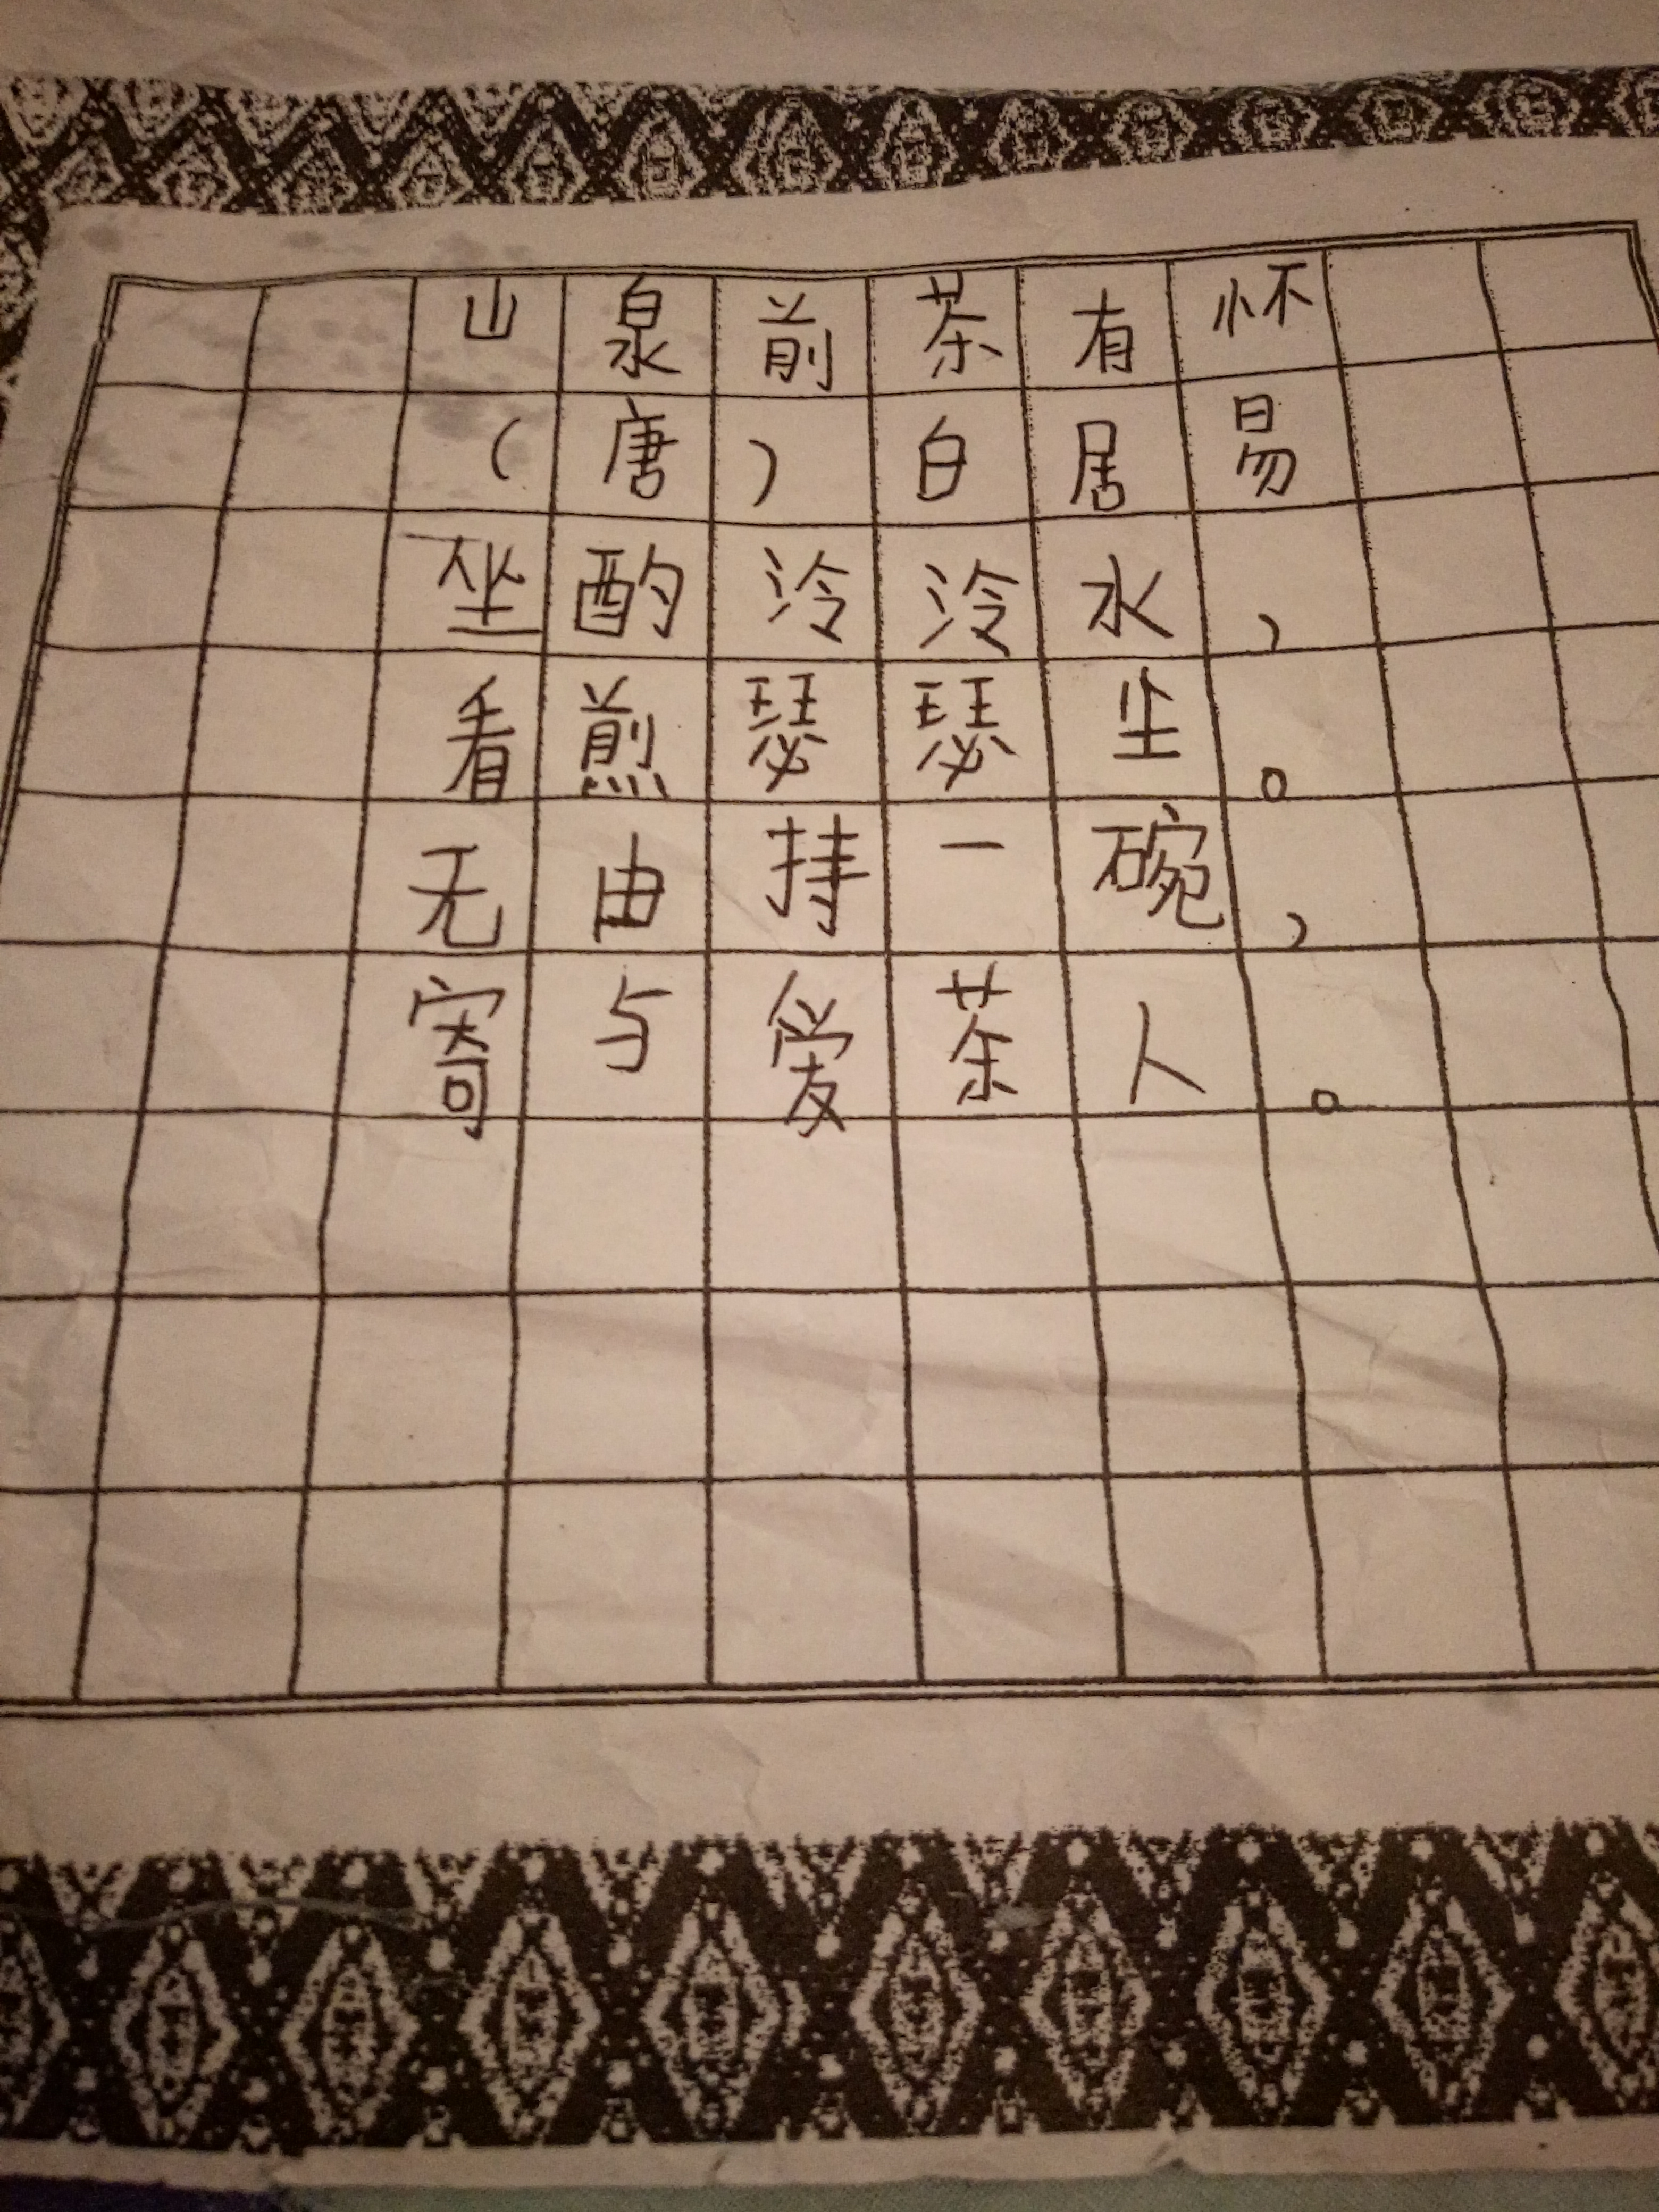 山泉前茶有怀
（唐）白居易
坐酌泠泠水，
看煎瑟瑟尘。
无由持一碗，
寄与爱茶人。